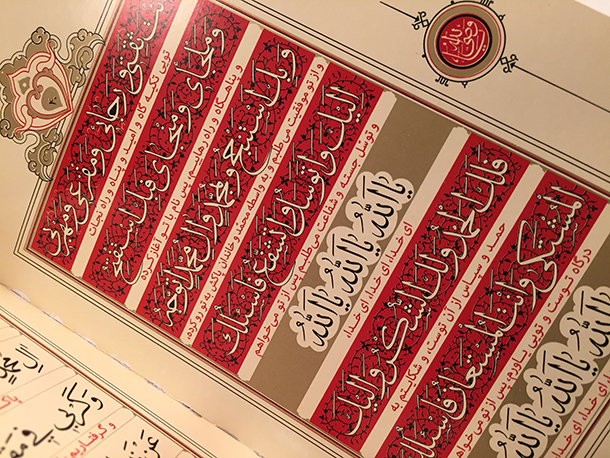 نت ثقتی و رجائی و مفزعی و مهربی
تویی تکیه گاه و امید و پناه و راه نجات
و ملجای و منجای فبک استفتح
و پناهگاه و راه رهاییم. پس با نام تو آغاز کرده
و بک استنجح و بمحمد و ال محمد اتوجه
و از تو موفقیت می طلبم و به واسطه محمد و خاندان پاکش به تو رو آورده
الیک و اتوسل و اتشفع فاسئلک
و توسل جسته و شفاعت می طلبم پس از تو می خواهم
یا الله یا الله یا الله
ای خدا، ای خدا، ای خدا،
فلک الحمد و لک الشکر و الیک
حمد و سپاس از آن توست، و شکایتم به
المشتکی و انت المستعان فاسئلک
درگاه توست و تویی یاورم، پس از تو می خواهم
یا الله یا الله یا الله